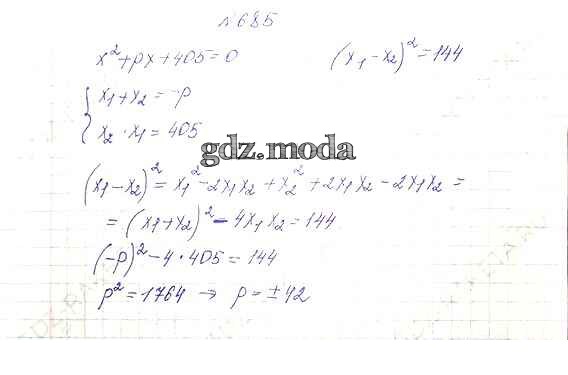 №685
x² + px + 405 = 0    (x₁ - x₂)² = 144
{ x₁ + x₂ = -p
x₂ · x₁ = 405
gdz.moda
(x₁ - x₂)² = x₁² - 2x₁x₂ + x₂² + 2x₁x₂ - 2x₁x₂ =
= (x₁ + x₂)² - 4x₁x₂ = 144
(-p)² - 4 · 405 = 144
p² = 1764 → p = ±42